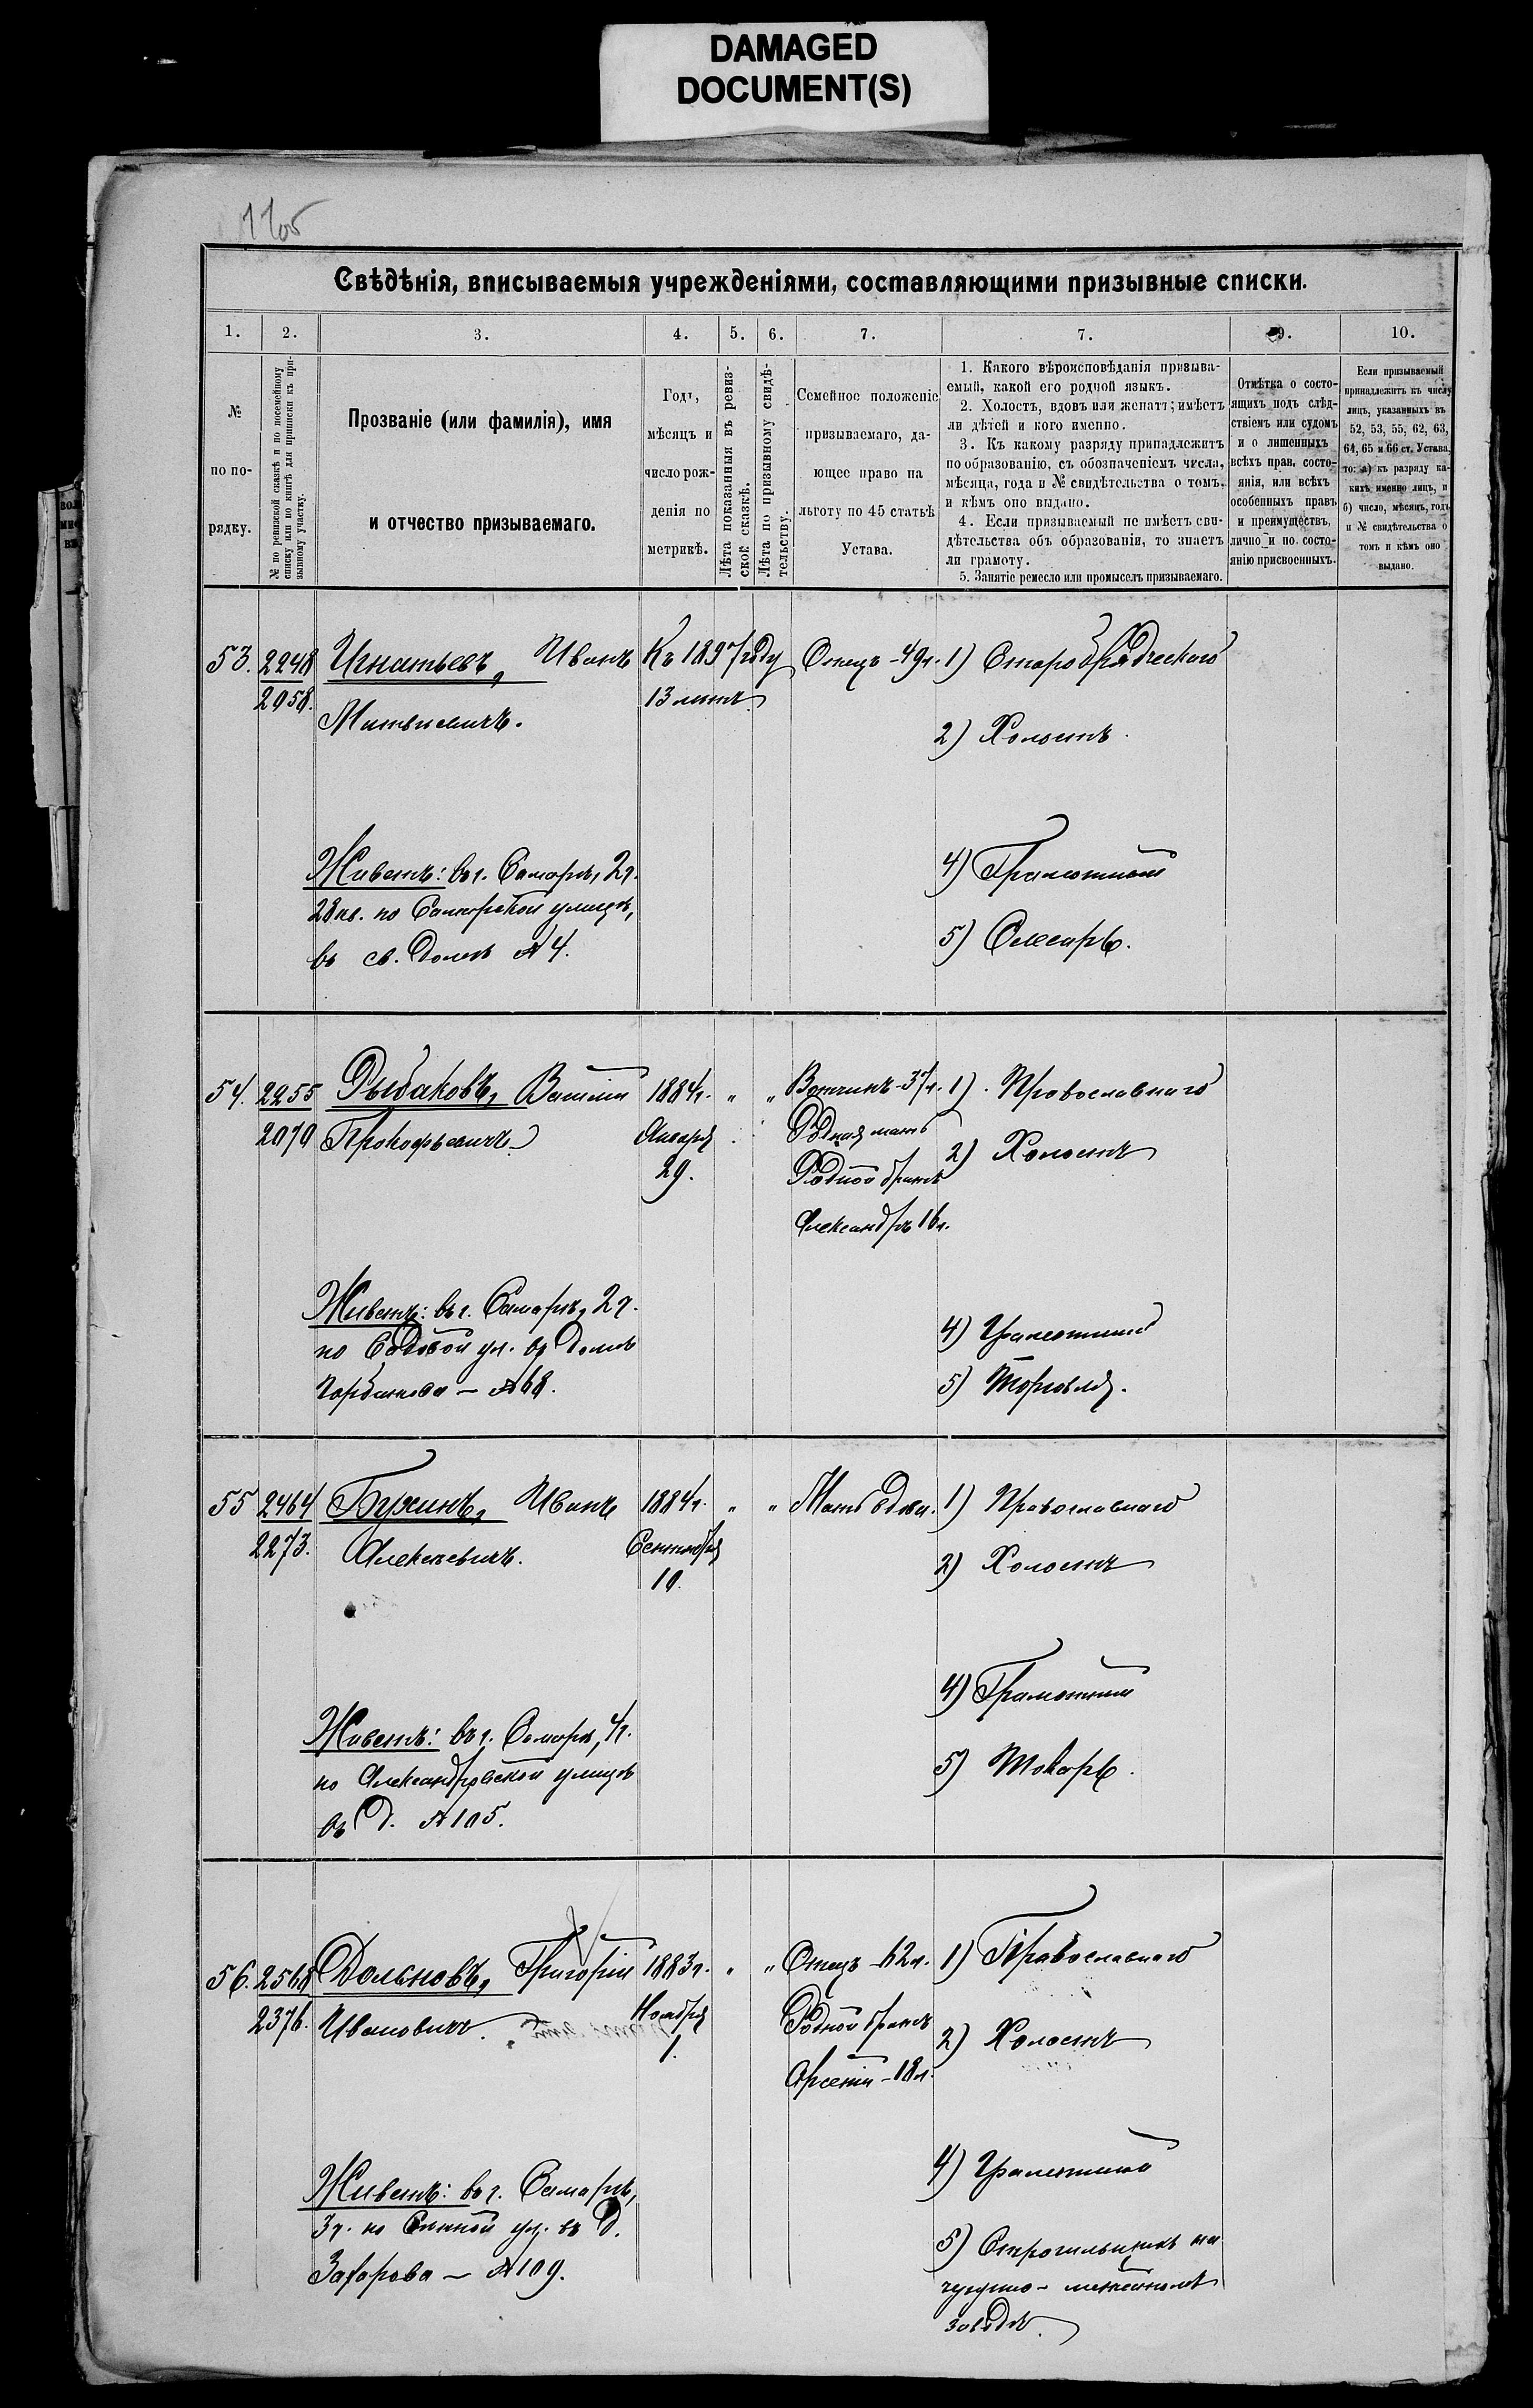 DAMAGED
DOCUMENT(S)
Свѣдѣнія, вписываемыя учрежденіями, составляющими призывные списки.
1. 2. 3. 4. 5. 6. 7. 7. 9. 10.
№
по по-
рядку.
№ по ревизской сказкѣ и по посемейному
списку или по книгѣ для приписки къ при-
зывному участку.
Прозваніе (или фамилія), имя
и отчество призываемаго.
Годъ,
мѣсяцъ и
число рож-
денія по
метрикѣ.
Лѣта показанныя въ ревиз-
ской сказкѣ.
Лѣта по призывному свидѣ-
тельству.
Семейное положеніе
призываемаго, да-
ющее право на
льготу по 45 статьѣ
Устава.
1. Какого вѣроисповѣданія призыва-
емый, какой его родной языкъ.
2. Холостъ, вдовъ или женатъ; имѣетъ
ли дѣтей и кого именно.
3. Къ какому разряду принадлежитъ
по образованію, съ обозначеніемъ числа,
мѣсяца, года и № свидѣтельства о томъ,
и кѣмъ оно выдано.
4. Если призываемый не имѣетъ сви-
дѣтельства объ образованіи, то знаетъ
ли грамоту.
5. Занятіе ремесло или промыселъ призываемаго.
Отмѣтка о состо-
ящихъ подъ слѣд-
ствіемъ или судомъ
и о лишенныхъ
всѣхъ прав. состо-
янія, или всѣхъ
особенныхъ правъ
и преимуществъ,
лично и по состо-
янію присвоенныхъ.
Если призываемый
принадлежитъ къ числу
лицъ, указанныхъ въ
52, 53, 55, 62, 63,
64, 65 и 66 ст. Устава,
то: а) къ разряду ка-
кихъ именно лицъ, и
б) число, мѣсяцъ, годъ
и № свидѣтельства о
томъ и кѣмъ оно
выдано.
53. 2248 Игнатьевъ, Иванъ Къ 1897 году Отецъ - 49 л. 1) Старообрядческого
2058. 13 лѣтъ.
2) Холостъ.
Живетъ: въ г. Самарѣ, 2 ч.
28 кв. по Самарской улицѣ,
въ св. домѣ № 4.
4) Грамотный
5) Слесарь.
54. 2255 Рыбаковъ, Василій 1884 г. " " Вотчимъ - 37 л. 1) Православнаго
2070 Прокофьевичъ Января Родная мать
29. Родной братъ 2) Холостъ
Александръ 16 л.
Живетъ: въ г. Самарѣ, 2 ч.
по Садовой ул. въ домѣ
Горбунова - № 68.
4) Грамотный
5) Торговля.
55 2464 Бузинъ, Иванъ 1884 г. " " Мать вдова. 1) Православнаго
2273. Алексѣевичъ. Сентября 2) Холостъ
10.
4) Грамотный
Живетъ: въ г. Самарѣ, 4 ч.
по Александровской улицѣ
въ д. № 105.
5) Токарь.
56. 2568 Долбновъ, Григорій 1883 г. " " Отецъ - 62 л. 1) Православнаго
2376. Ивановичъ. Ноября Родной братъ 2) Холостъ
1. Арсеній - 18 л.
Живетъ: въ г. Самарѣ,
3 ч. по Сѣнной ул. въ д.
Захарова - № 109.
4) Грамотный
5) Строгальщикъ на
чугунно-литейномъ
заводѣ.